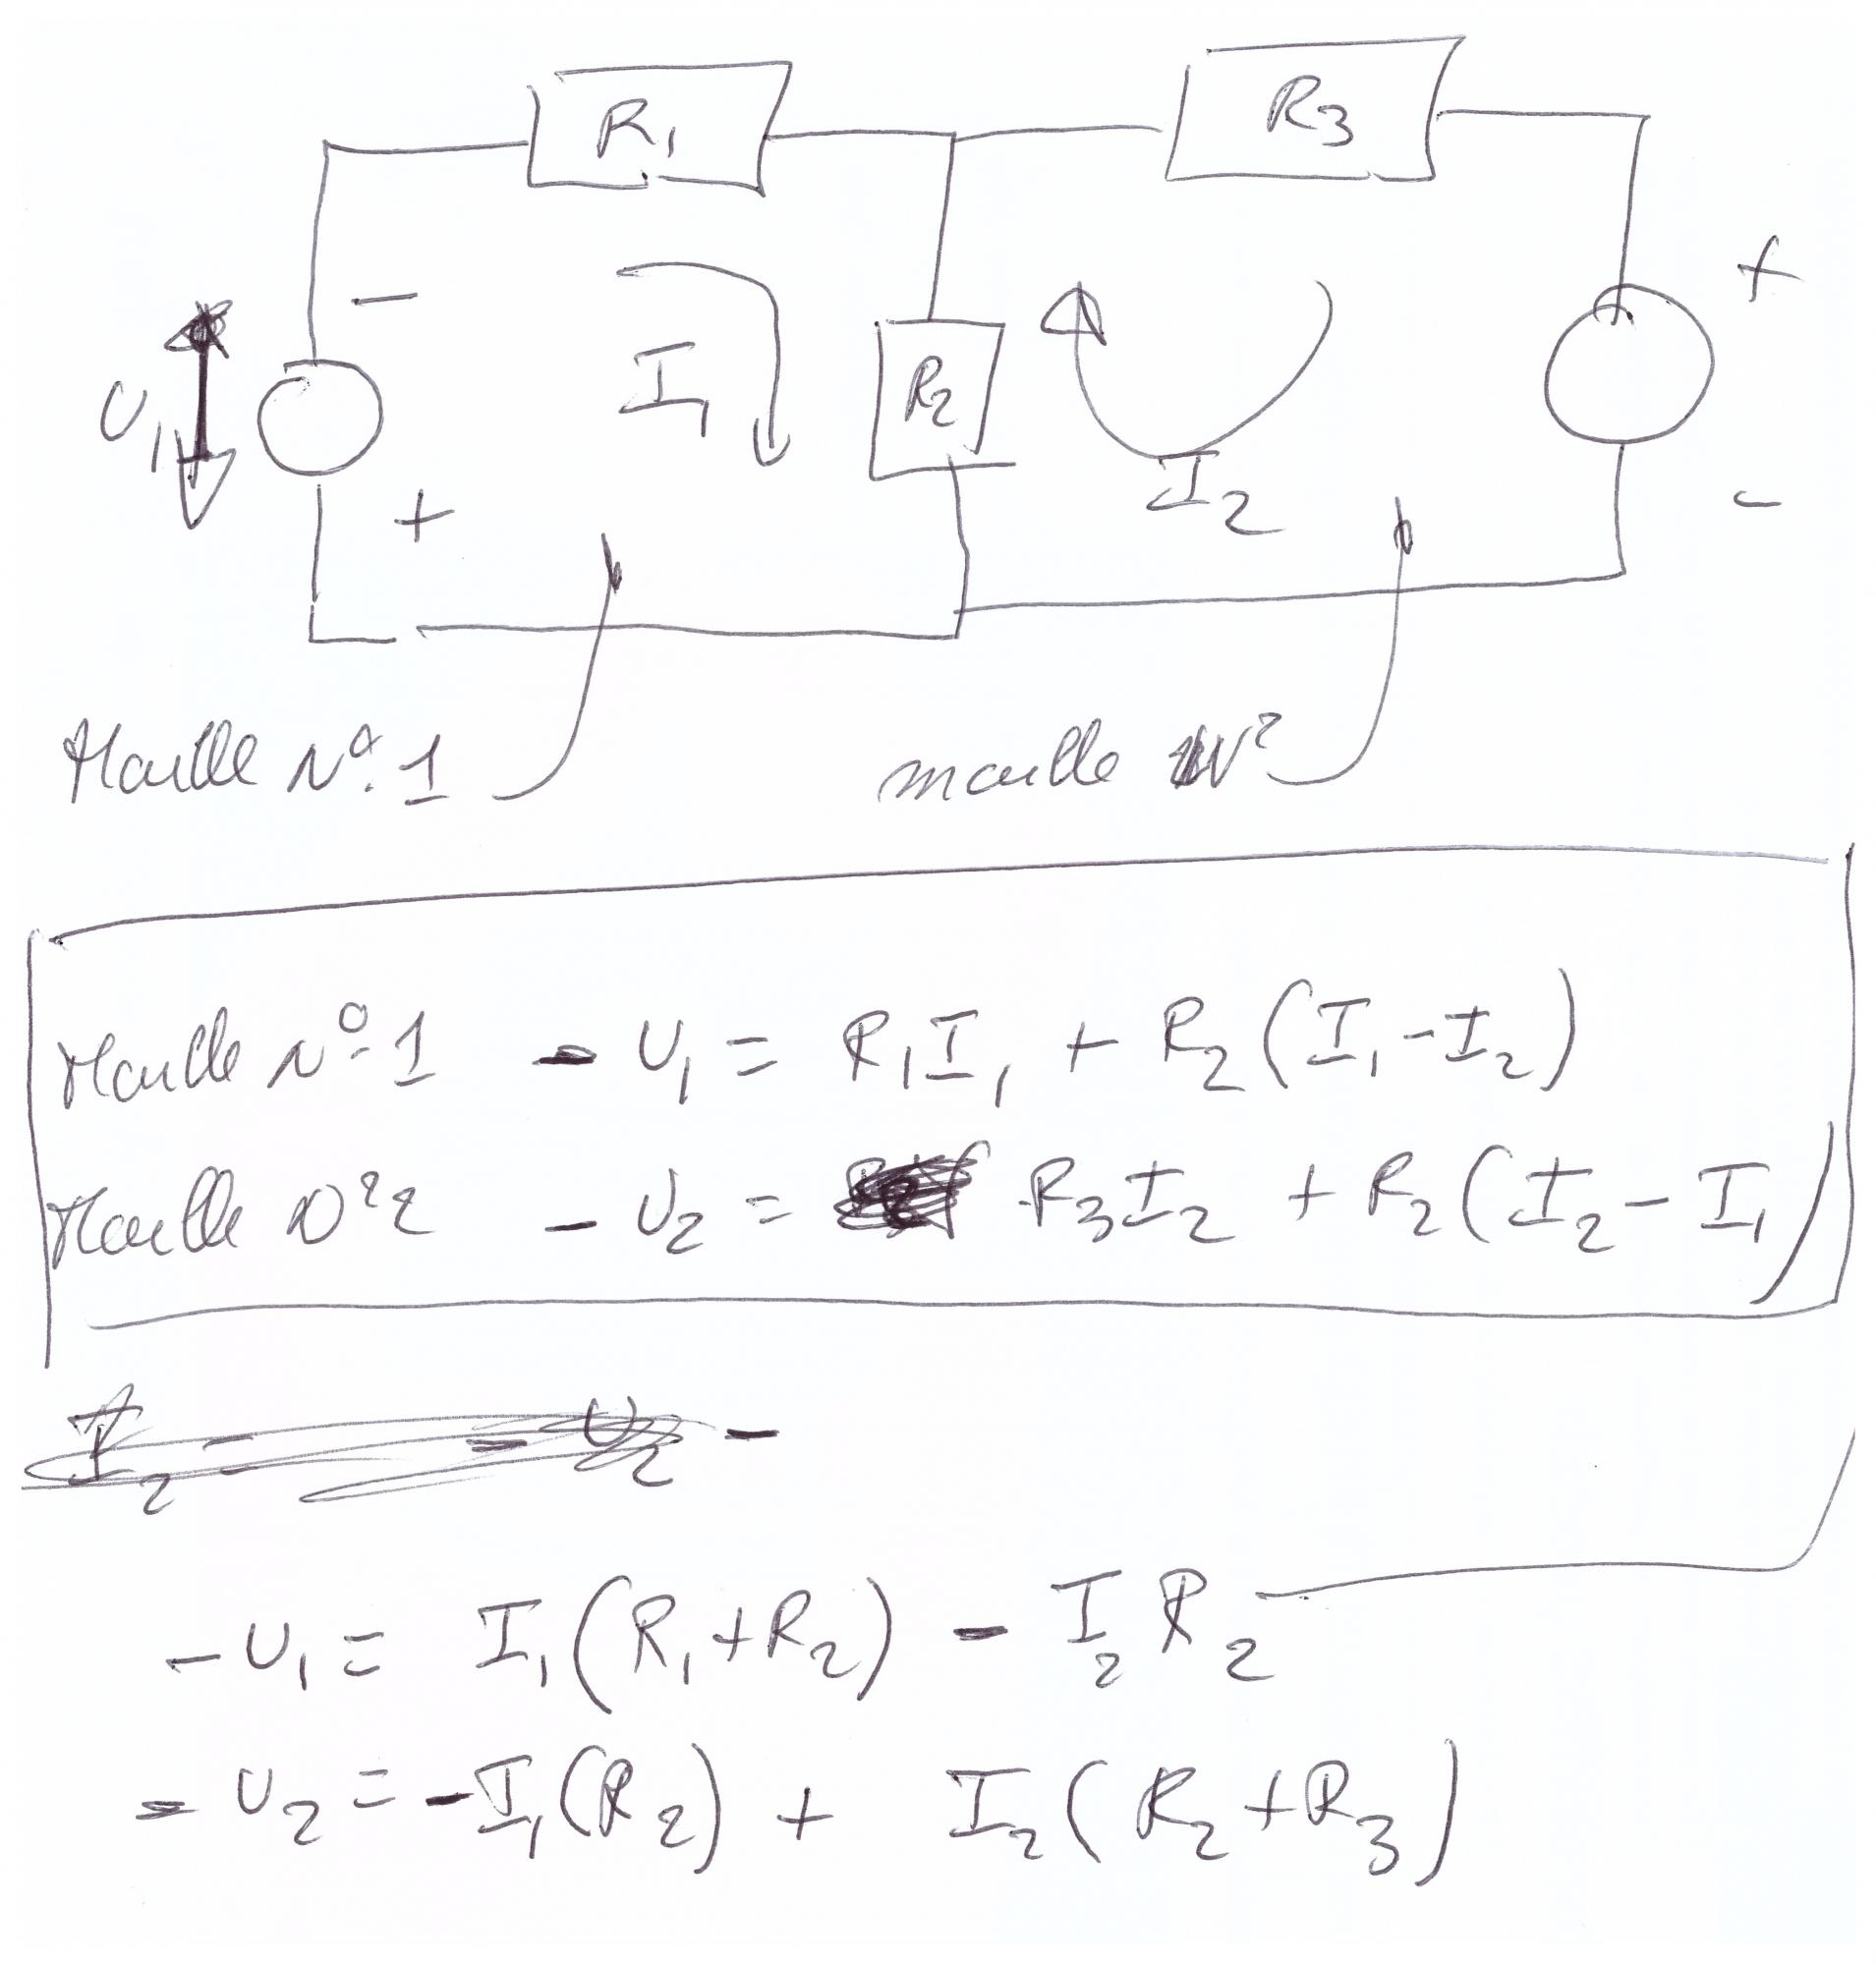 R1
R3
-
+
U1
I1
R2
I2
+
-
Maille N° 1
maille N°
Maille N° 1 - U1 = R1I1 + R2 (I1 - I2)
Maille N° 2 - U2 = R3I2 + R2 (I2 - I1)
I2 = - U2 -
- U1 = I1 (R1 + R2) - I2 R2
- U2 = - I1 (R2) + I2 (R2 + R3)